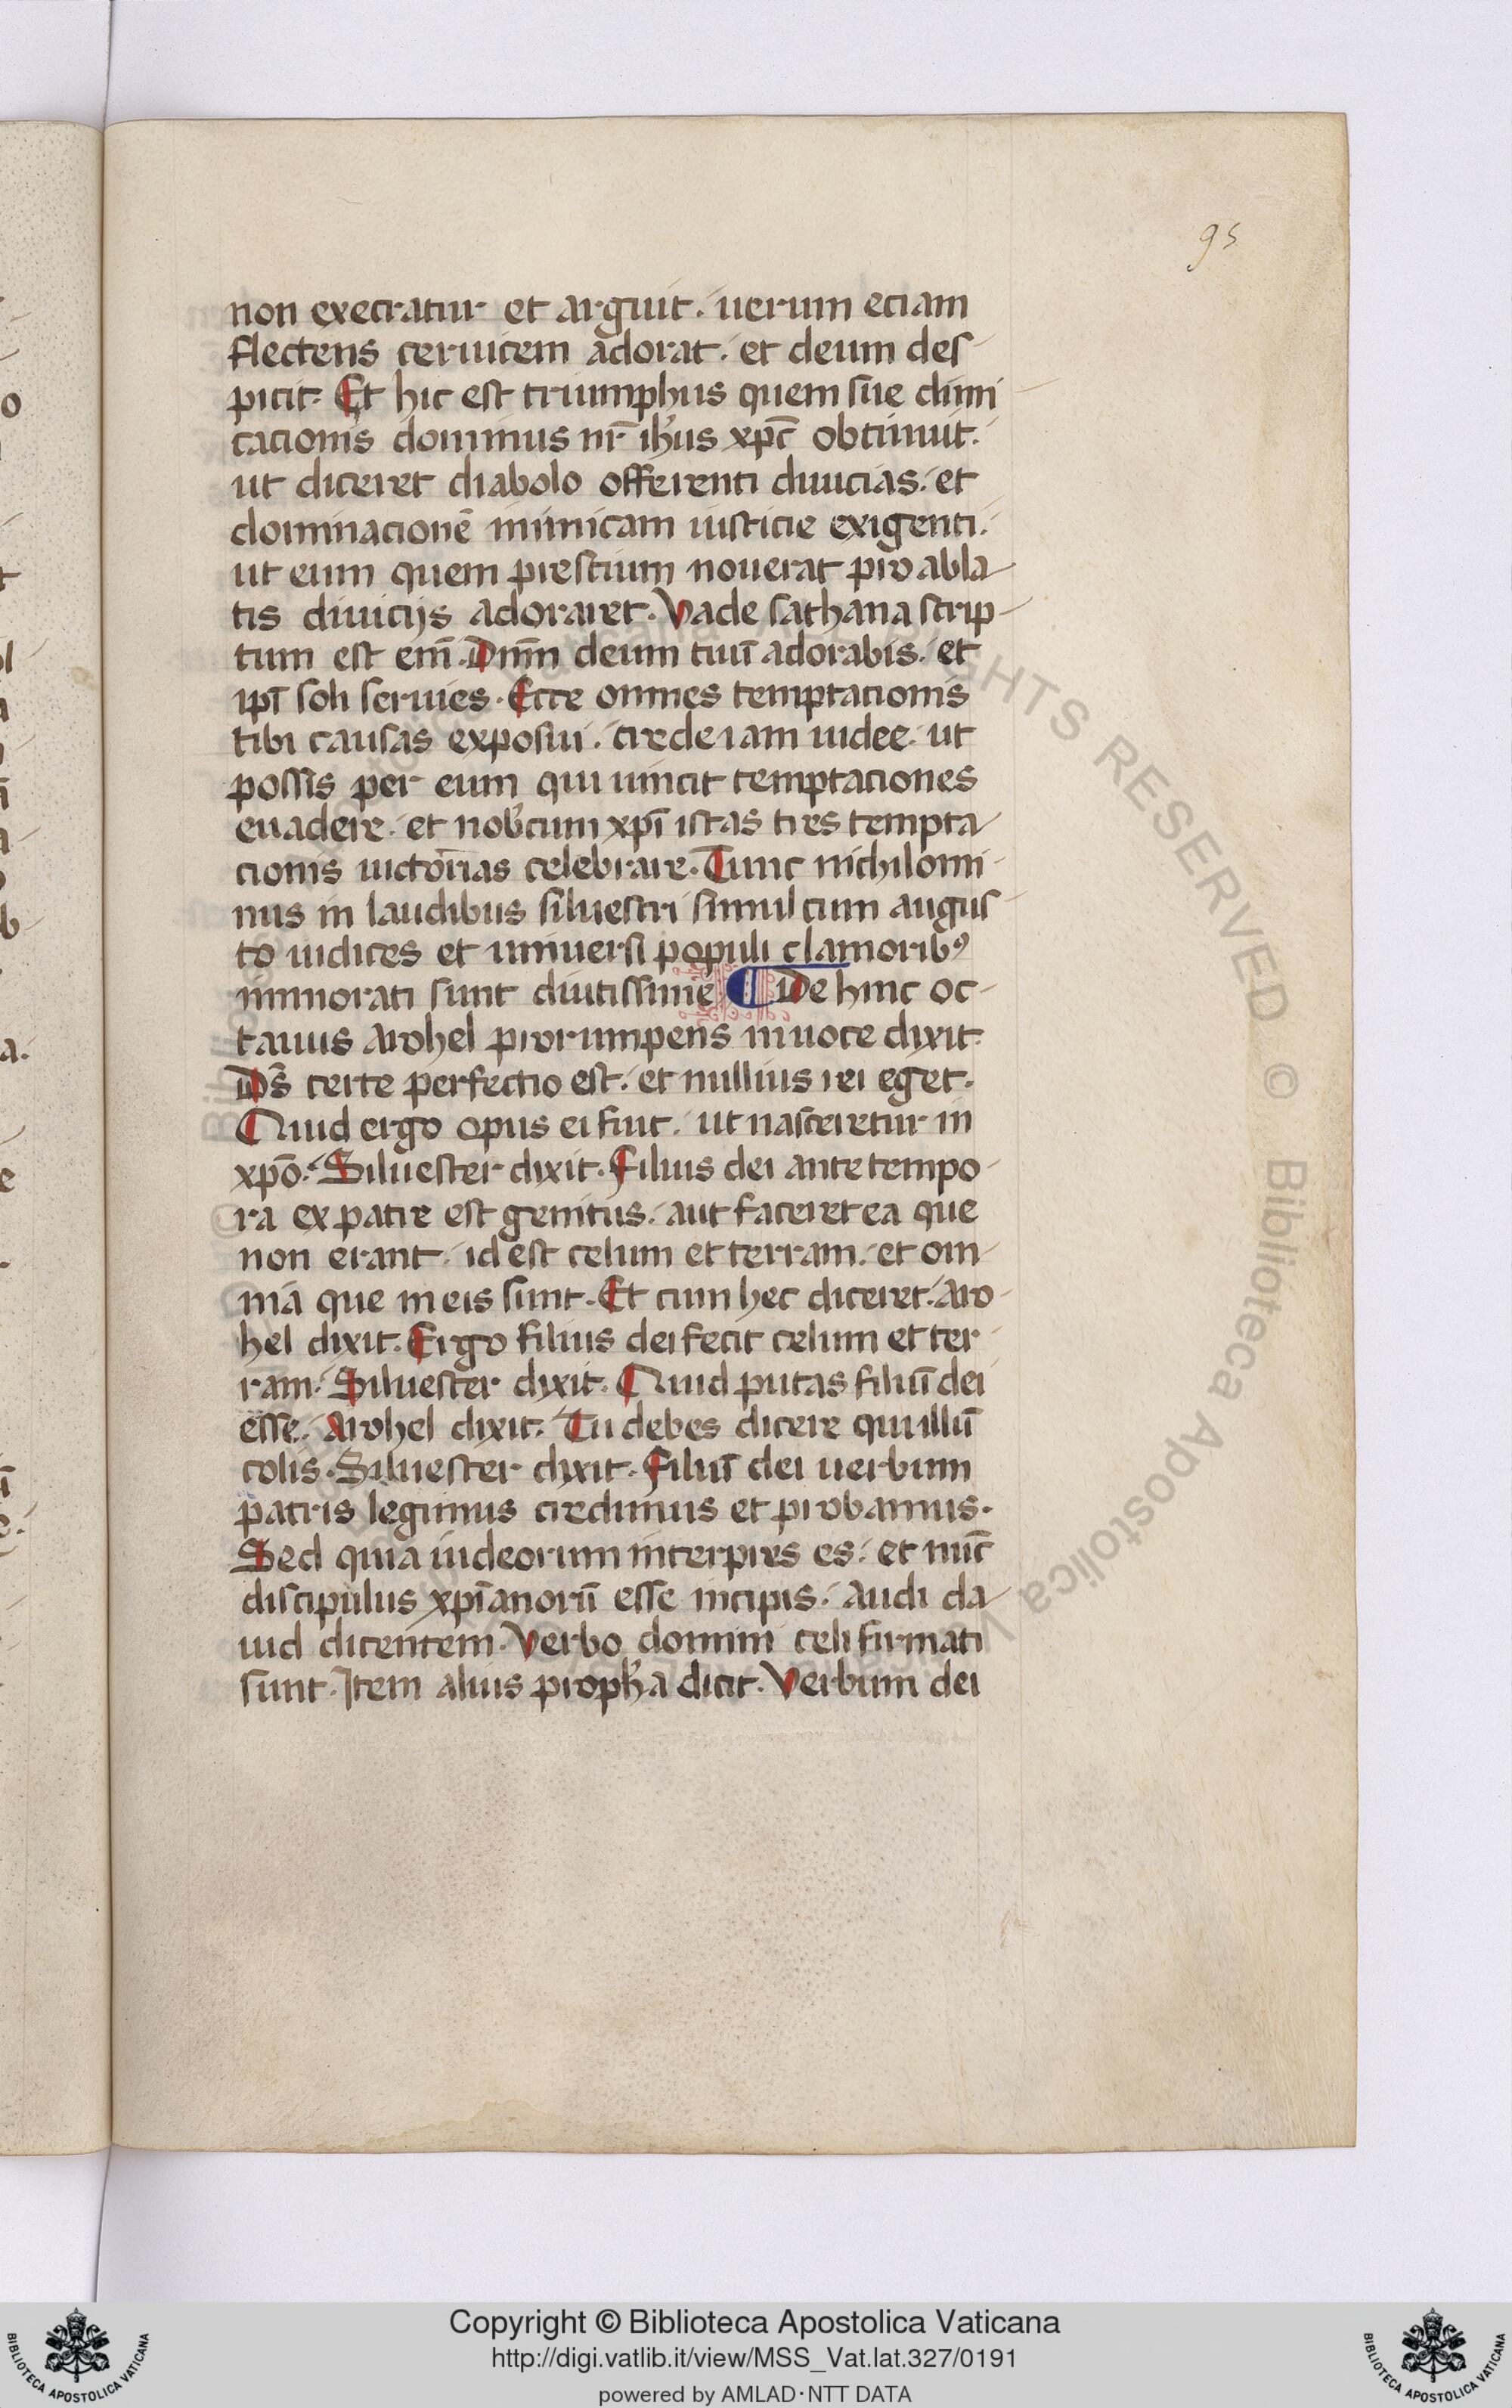 95
non execratur et arguit. uerum eciam
flectens ceruicem adorat. et deum des
picit. Et hic est triumphus quem sue dimi
cacionis dominus nr̄ ih̓us xpc̄ obtinuit.
ut diceret diabolo offerenti diuicias. et
dominacionē inimicam iusticie exigenti.
ut eum quem prestium nouerat pro abla
tis diuicijs adoraret. Vade sathana scrip
tum est em̄. Dn̄m deum tuū adorabis. et
ipī soli seruies. Ecce omnes temptacionis
tibi causas exposui. crede iam iudee. ut
possis per eum qui uincit temptaciones
euadere. et nob̓cum xpī istas tres tempta
cionis uictorias celebrare. Tunc nichilomi
nus in laudibus siluestri simul cum augus
to iudices et uniuersi populi clamoribꝰ
inmorati sunt diutissime De hinc oc
tauus Arohel prorumpens in uoce dixit.
Ds̄ certe perfectio est. et nullius rei eget.
Quid ergo opus ei fuit. ut nasceretur in
xpō. Siluester dixit. Filius dei ante tempo
ra ex patre est genitus. aut faceret ea que
non erant. id est celum et terram. et om
nia que in eis sunt. Et cum hec diceret. Aro
hel dixit. Ergo filius dei fecit celum et ter
ram. Siluester dixit. Quid putas filiū dei
esse. Arohel dixit. Tu debes dicere qui illū
colis. Siluester dixit. Filiū dei uerbum
patris legimus credimus et probamus.
Sed quia iudeorum interpres es. et nūc
discipulus xpīanorū esse incipis. Audi da
uid dicentem. Verbo domini celi firmati
sunt. Item alius proph̓a dicit. Verbum dei
Copyright © Biblioteca Apostolica Vaticana
http://digi.vatlib.it/view/MSS_Vat.lat.327/0191
powered by AMLAD·NTT DATA